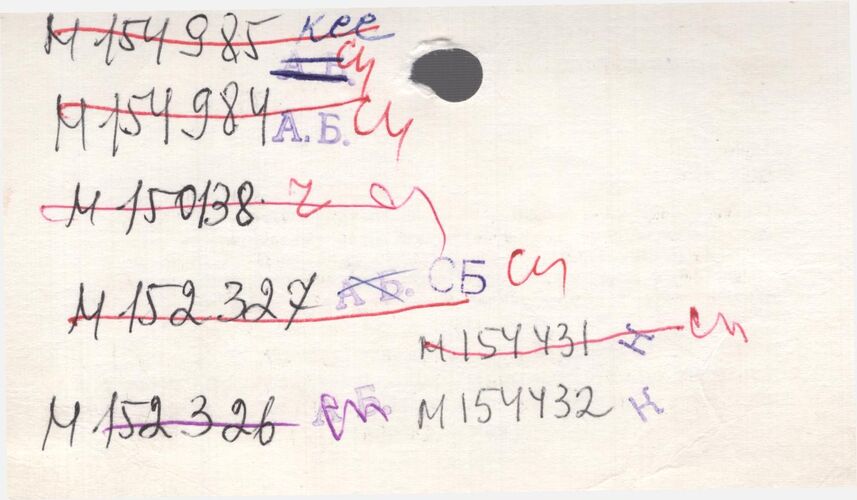 М 154985 кее
А.Б. Сч
М 154984 А.Б. Сч
М 150138 ч Сч
М 152327 А.Б. СБ Сч
М 154431 Н Сч
М 152326 А.Б. Сч
М 154432 Н